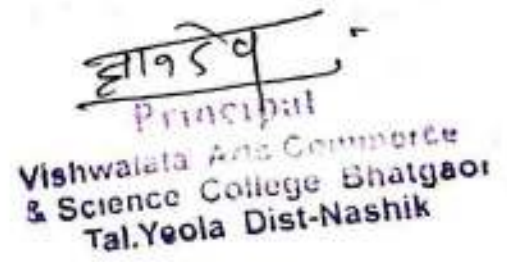 ज्ञानदेव
Principal
Vishwalata Arts Commerce
& Science College Bhatgaon
Tal.Yeola Dist-Nashik